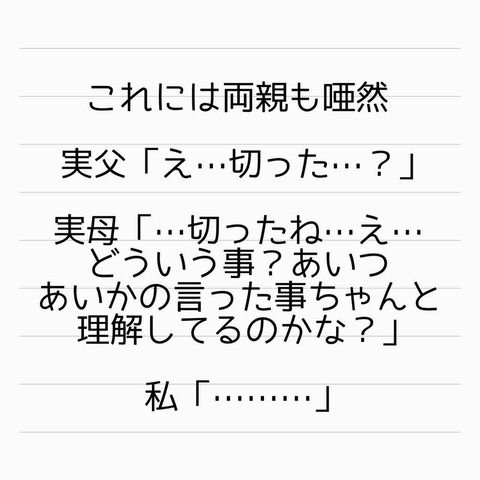 これには両親も唖然
実父「え…切った…？」
実母「…切ったね…え…
どういう事？あいつ
あいかの言った事ちゃんと
理解してるのかな？」
私「………」